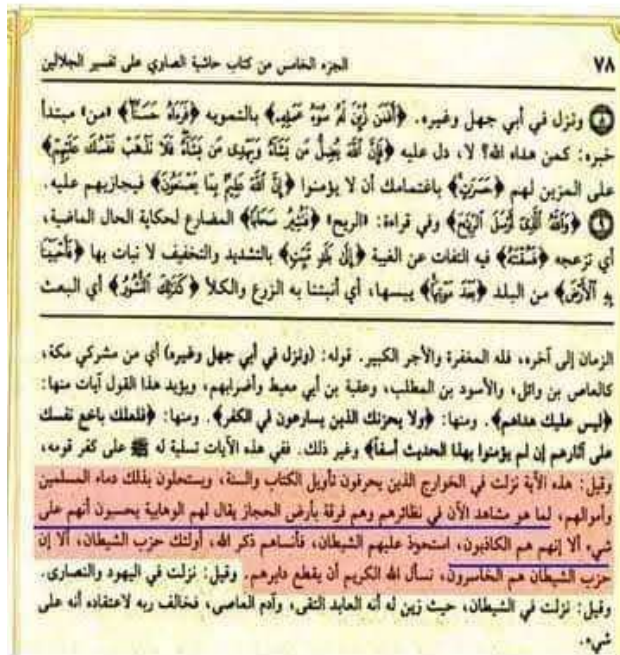 ٧٨ الجزء الخامس من كتاب حاشية الصاوي على تفسير الجلالين
⑧ ونزل في أبي جهل وغيره. ﴿أَفَمَن زُيِّنَ لَهُ سُوءُ عَمَلِهِ﴾ بالتمويه ﴿فَرَآهُ حَسَناً﴾ «من» مبتدأ
خبره: كمن هداه الله؟ لا، دل عليه ﴿فَإِنَّ اللَّهَ يُضِلُّ مَن يَشَاءُ وَيَهْدِي مَن يَشَاءُ فَلَا تَذْهَبْ نَفْسُكَ عَلَيْهِمْ﴾
على المزين لهم ﴿حَسَرَاتٍ﴾ باغتمامك أن لا يؤمنوا ﴿إِنَّ اللَّهَ عَلِيمٌ بِمَا يَصْنَعُونَ﴾ فيجازيهم عليه.
⑨ ﴿وَاللَّهُ الَّذِي أَرْسَلَ الرِّيَاحَ﴾ وفي قراءة: «الريح» ﴿فَتُثِيرُ سَحَاباً﴾ المضارع لحكاية الحال الماضية،
أي تزعجه ﴿فَسُقْنَاهُ﴾ فيه التفات عن الغيبة ﴿إِلَى بَلَدٍ مَّيِّتٍ﴾ بالتشديد والتخفيف لا نبات بها ﴿فَأَحْيَيْنَا
بِهِ الْأَرْضَ﴾ من البلد ﴿بَعْدَ مَوْتِهَا﴾ يبسها، أي أنبتنا به الزرع والكلأ ﴿كَذَلِكَ النُّشُورُ﴾ أي البعث
الزمان إلى آخره، فله المغفرة والأجر الكبير. قوله: (ونزل في أبي جهل وغيره) أي من مشركي مكة،
كالعاص بن وائل، والأسود بن المطلب، وعقبة بن أبي معيط وأضرابهم، ويؤيد هذا القول آيات منها:
﴿ليس عليك هداهم﴾. ومنها: ﴿ولا يحزنك الذين يسارعون في الكفر﴾. ومنها: ﴿فلعلك باخع نفسك
على آثارهم إن لم يؤمنوا بهذا الحديث أسفاً﴾ وغير ذلك. ففي هذه الآيات تسلية له ﷺ على كفر قومه،
وقيل: هذه الآية نزلت في الخوارج الذين يحرفون تأويل الكتاب والسنة، ويستحلون بذلك دماء المسلمين
وأموالهم، لما هو مشاهد الآن في نظائرهم وهم فرقة بأرض الحجاز يقال لهم الوهابية يحسبون أنهم على
شيء ألا إنهم هم الكاذبون، استحوذ عليهم الشيطان، فأنساهم ذكر الله، أولئك حزب الشيطان، ألا إن
حزب الشيطان هم الخاسرون، نسأل الله الكريم أن يقطع دابرهم. وقيل: نزلت في اليهود والنصارى.
وقيل: نزلت في الشيطان، حيث زين له أنه العابد التقي، وآدم العاصي، فخالف ربه لاعتقاده أنه على
شيء.